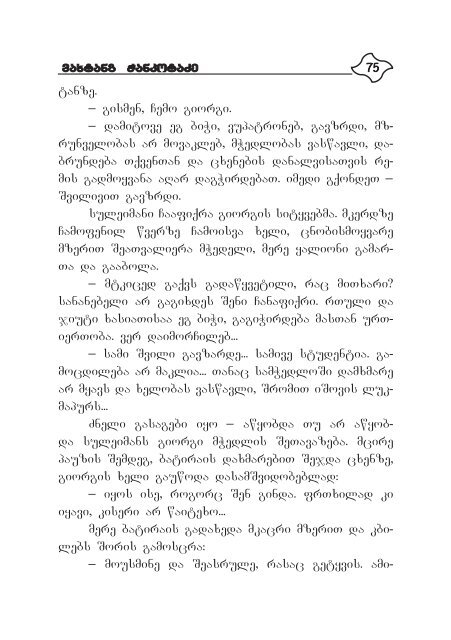 ვახტანგ ჟანკოტაძე
75
ტანზე.
– გისმენ, ჩემო გიორგი.
– დამიტოვე ეგ ბიჭი, ვუპატრონებ, გავზრდი, მზ-
რუნველობას არ მოვაკლებ, მჭედლობას ვასწავლი, და-
ბრუნდება თქვენთან და ცხენების დანალვისათვის რე-
მის გადმოყვანა აღარ დაგჭირდებათ. იმედი გქონდეთ –
შვილივით გავზრდი.
სულეიმანი ჩააფიქრა გიორგის სიტყვებმა. მკერდზე
ჩამოფენილ წვერზე ჩამოისვა ხელი, ცნობისმოყვარე
მზერით შეათვალიერა მჭედელი, მერე ყალიონი გამარ-
თა და გააბოლა.
– მტკიცედ გაქვს გადაწყვეტილი, რაც მითხარი?
სანანებელი არ გაგიხდეს შენი ჩანაფიქრი. რთული და
ჯიუტი ხასიათისაა ეგ ბიჭი, გაგიჭირდება მასთან ურთ-
იერთობა. ვერ დაიმორჩილებ...
– სამი შვილი გავზარდე... სამივე სტუდენტია. გა-
მოცდილება არ მაკლია... თანაც სამჭედლოში დამხმარე
არ მყავს და ხელობას ვასწავლი, შრომით იშოვის ლუკ-
მაპურს...
ძნელი გასაგები იყო – აწყობდა თუ არ აწყობ-
და სულეიმანს გიორგი მჭედლის შეთავაზება. მცირე
პაუზის შემდეგ, ბატირაის დახმარებით შეჯდა ცხენზე,
გიორგის ხელი გაუწოდა დასამშვიდობებლად:
– იყოს ისე, როგორც შენ გინდა. ფრთხილად კი
იყავი, კისერი არ წაიტეხო...
მერე ბატირაის გადახედა მკაცრი მზერით და კბი-
ლებს შორის გამოსცრა:
– მოუსმინე და შეასრულე, რასაც გეტყვის. ამი-